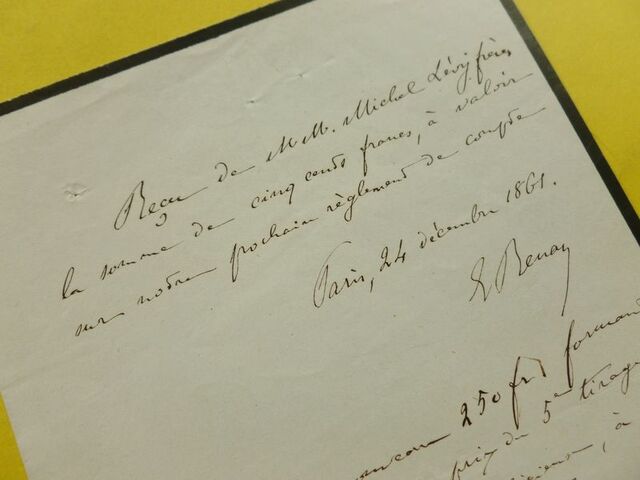 Reçu de M.M. Michel Lévy frères
la somme de cinq cents francs, à valoir
sur notre prochain règlement de compte
Paris, 24 décembre 1861.
E Renan
250 frs formant
prix du 5e tirage
à